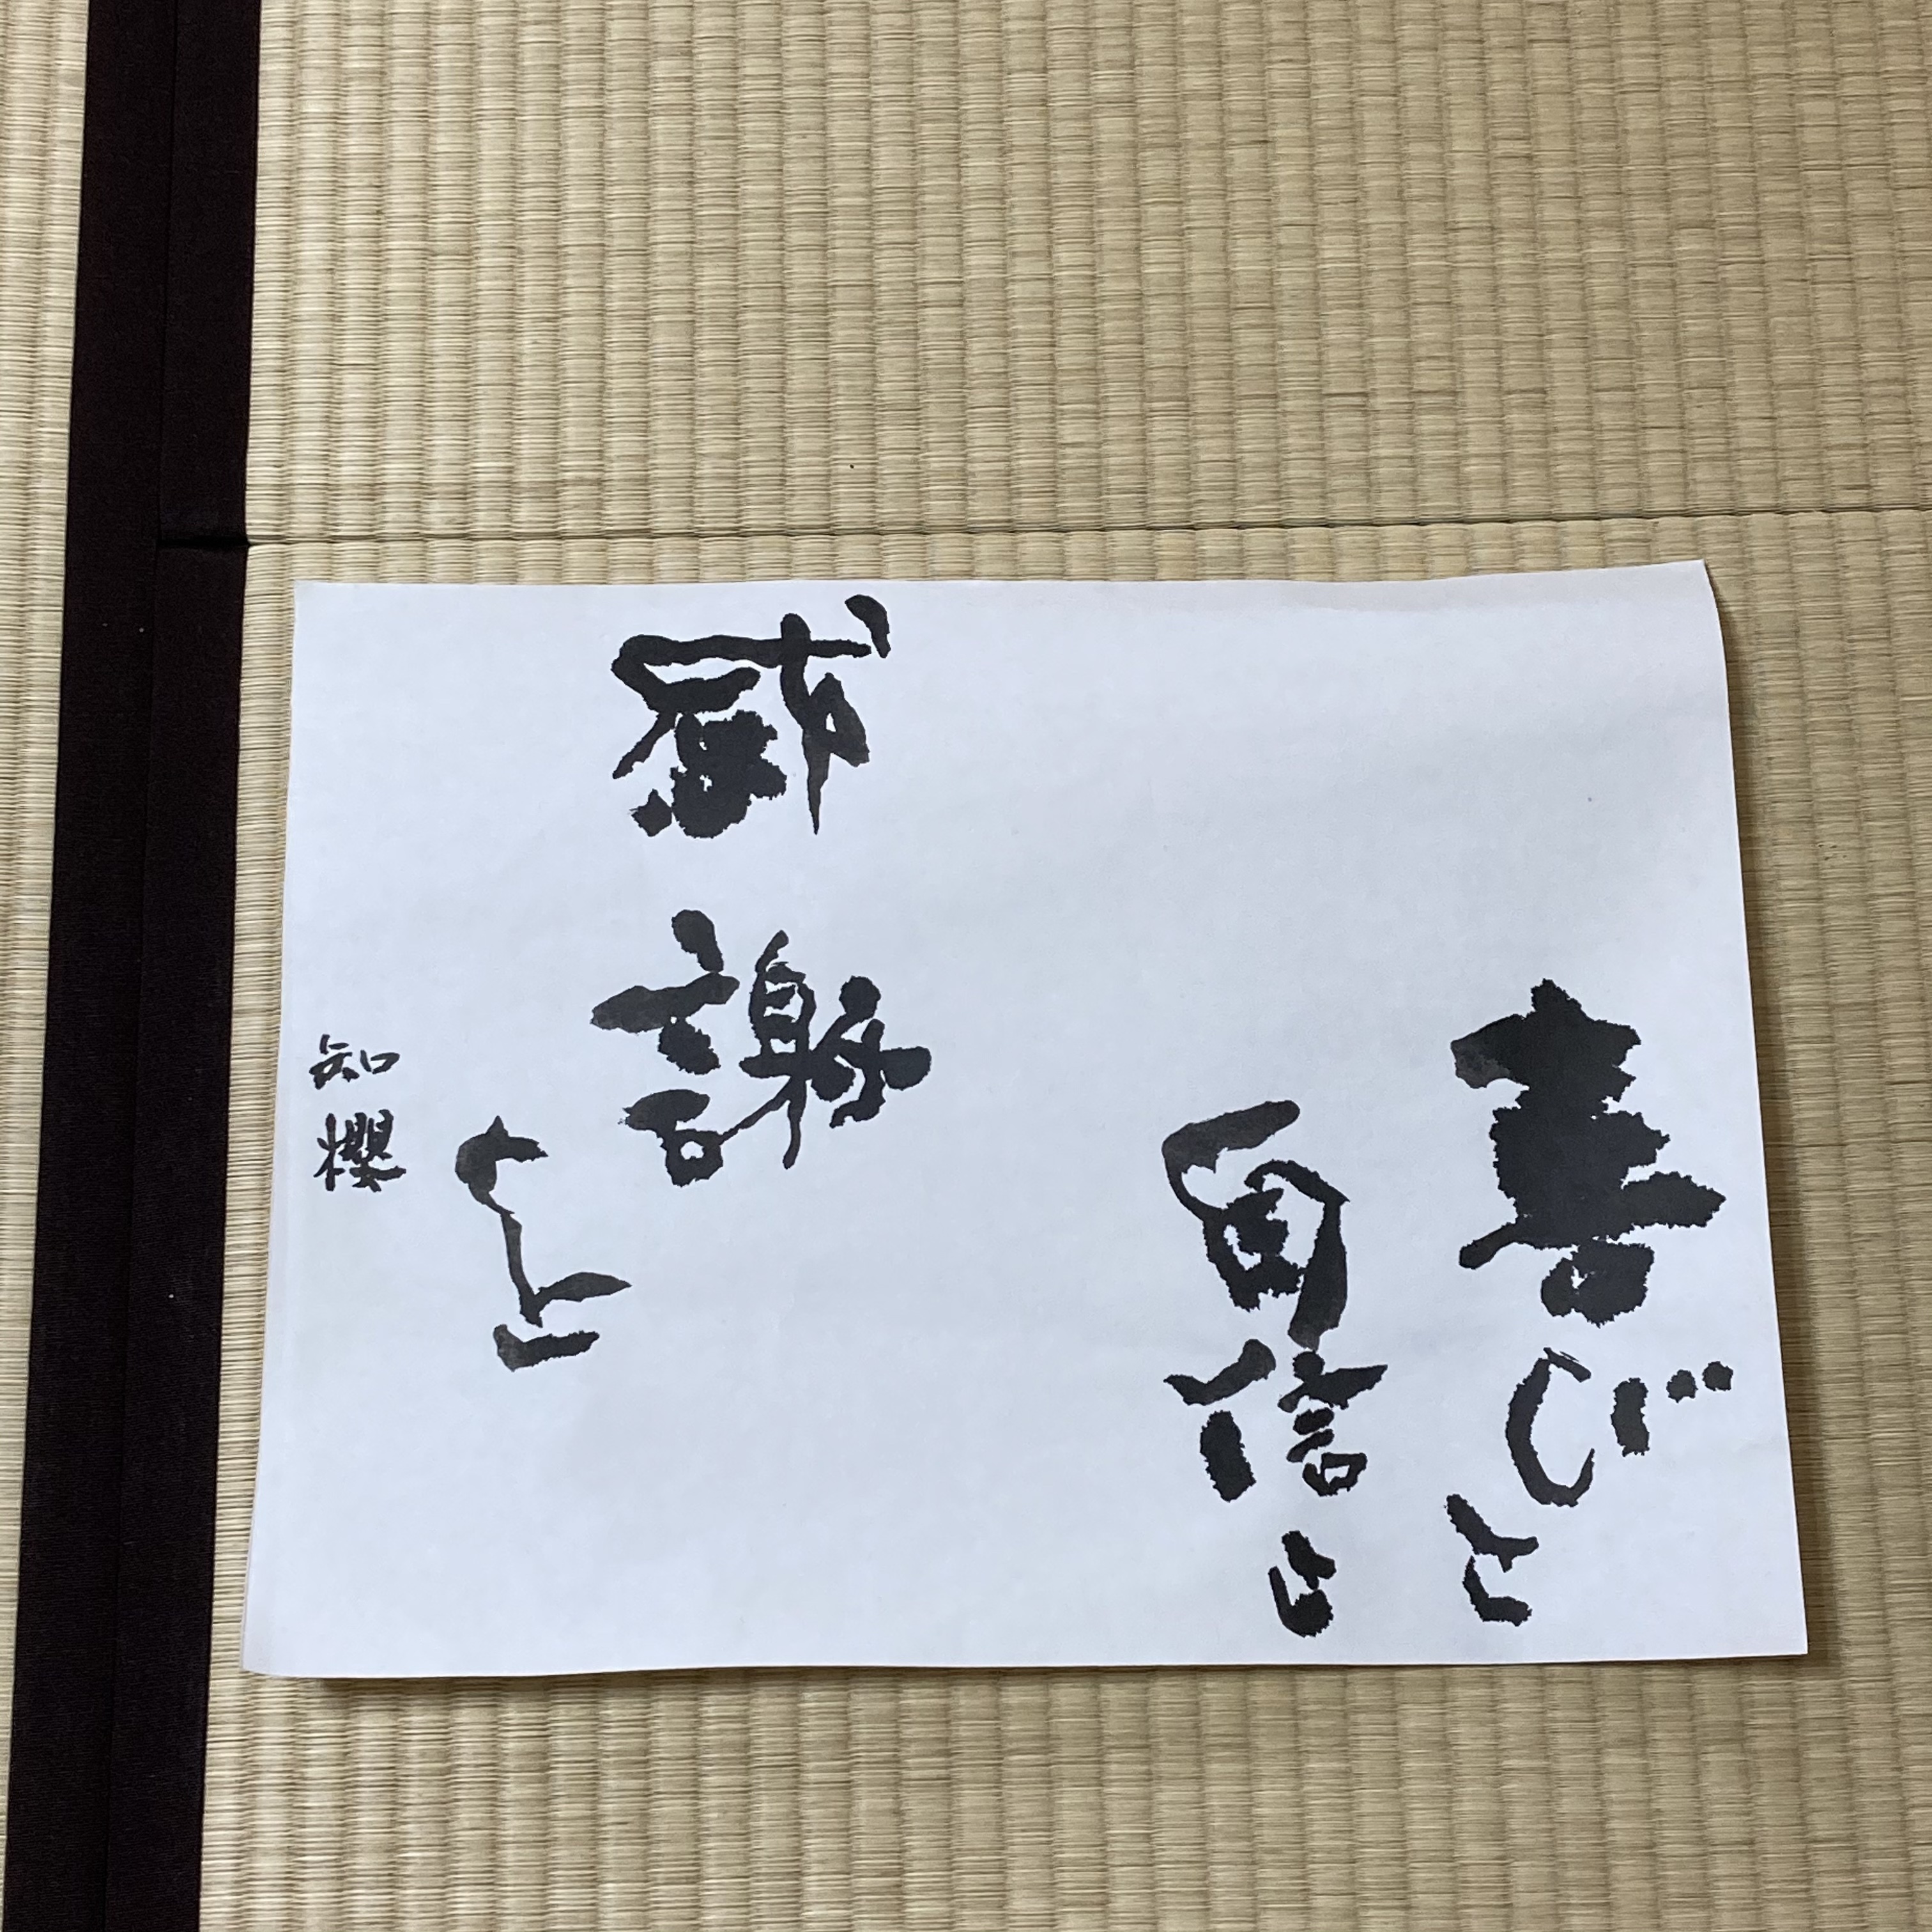 喜びと
自信と
感謝
と
知櫻